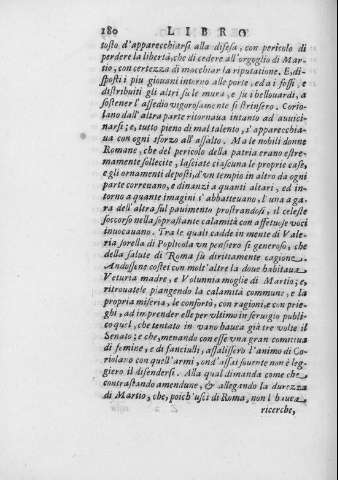 180 LIBRO
tosto d'apparecchiarsi alla difesa, con pericolo di
perdere la libertà, che di cedere all'orgoglio di Mar-
tio, con certezza di macchiar la riputatione. E, di-
sposti i piu giouani intorno alle porte, ed a i fossi, e
distribuiti gli altri su le mura, e su i bellouardi, a
sostener l'assedio vigorosamente si strinsero. Corio-
lano dall'altra parte ritornaua intanto ad auuici-
narsi; e, tutto pieno di mal talento, s'apparecchia-
ua con ogni sforzo all'assalto. Ma le nobili donne
Romane, che del pericolo della patria erano estre-
mamente sollecite, lasciate ciascuna le proprie case,
e gli ornamenti deposti, d'un tempio in altro da ogni
parte correuano, e dinanzi a quanti altari, ed in-
torno a quante imagini s'abbatteuano, l'una a ga-
ra dell'altra sul pauimento prostrandosi, il celeste
soccorso nella soprastante calamità con affettuose voci
inuocauano. Tra le quali cadde in mente di Vale-
ria sorella di Poplicola vn pensiero si generoso, che
della salute di Roma fù dirittamente cagione.
Andossene costei con molt'altre là doue habitaua
Veturia madre, e Volunnia moglie di Martio; e,
ritrouatele piangendo la calamità commune, e la
propria miseria, le confortò, con ragioni, e con prie-
ghi, ad imprender elle per vltimo in seruigio publi-
co quel, che tentato in vano hauea già tre volte il
Senato; e che, menando con esse vna gran comitiua
di femine, e di fanciulli, assalissero l'animo di Co-
riolano con quell'armi, ond'assai souente non è leg-
giero il difendersi. Alla qual dimanda come che
contrastando amendune, & allegando la durezza
di Martio, che, poich'uscì di Roma, non l'hauea
ricerche,